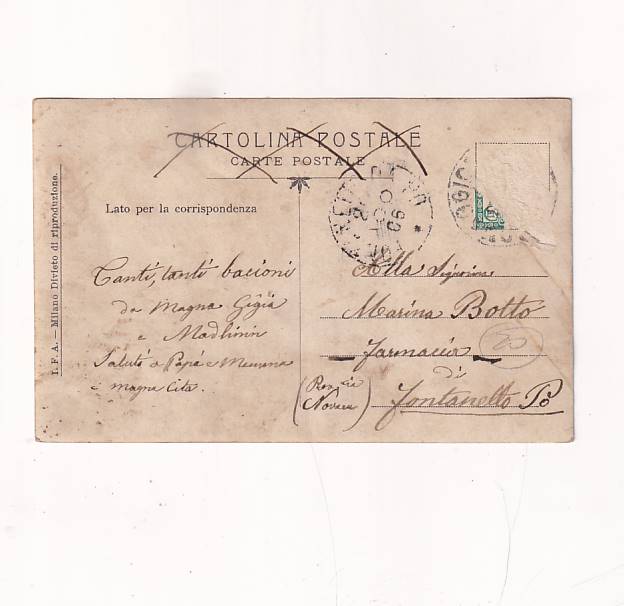 CARTOLINA POSTALE
CARTE POSTALE
Lato per la corrispondenza
I. F. A. — Milano Divieto di riproduzione.
Tanti, tanti bacioni
da Magna Gigia
e
Saluti a Papà e Mamma
e magna Cita.
Alla Signorina
Marina Botto
Farmacia
di
Fontanetto Po
(Novara)
20
06
5